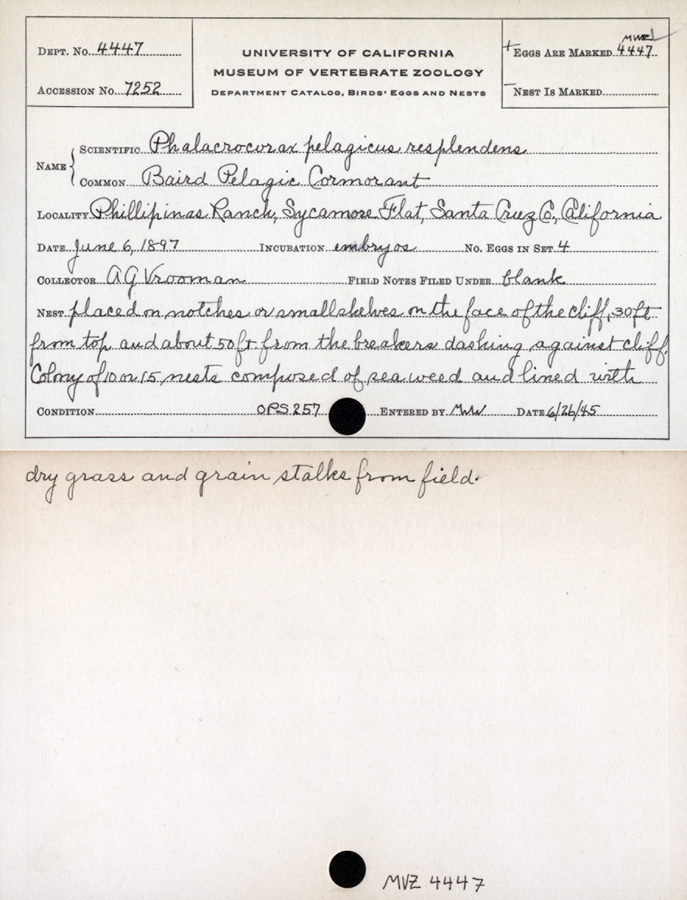 DEPT. NO. 4447
ACCESSION NO. 7252
UNIVERSITY OF CALIFORNIA
MUSEUM OF VERTEBRATE ZOOLOGY
DEPARTMENT CATALOG, BIRDS' EGGS AND NESTS
MVZ
+ EGGS ARE MARKED 4447
- NEST IS MARKED
NAME { SCIENTIFIC Phalacrocorax pelagicus resplendens
COMMON Baird Pelagic Cormorant
LOCALITY Phillipinas Ranch, Sycamore Flat, Santa Cruz Co, California
DATE June 6, 1897 INCUBATION embryos NO. EGGS IN SET 4
COLLECTOR A G Vrooman FIELD NOTES FILED UNDER blank
NEST placed on notches or small shelves on the face of the cliff, 30ft
from top and about 50ft from the breakers dashing against cliff.
Colony of 10 or 15 nests composed of sea weed and lined with
CONDITION OPS 257 ENTERED BY MWW DATE 6/26/45
dry grass and grain stalks from field.
MVZ 4447